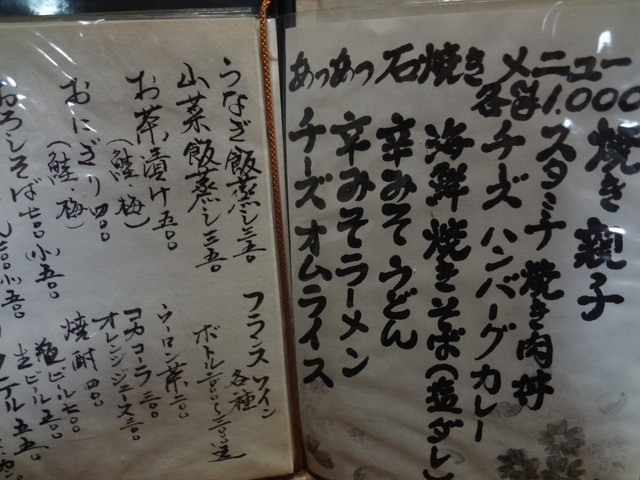 あつあつ石焼きメニュー
各¥1.000
焼き親子
スタミナ焼き肉丼
チーズハンバーグカレー
海鮮焼きそば(塩ダレ)
辛みそうどん
辛みそラーメン
チーズオムライス
うなぎ飯蒸し三五〇
山菜飯蒸し三五〇
お茶漬け五〇〇
(鮭・梅)
おにぎり四〇〇
(鮭・梅)
おろしそば七〇〇小五〇〇
フランスワイン
各種
ウーロン茶二〇〇
コカコーラ三〇〇
オレンジジュース三〇〇
焼酎四〇〇
瓶ビール七〇〇
生ビール五〇〇